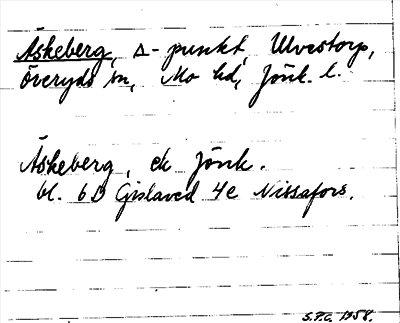 Äskeberg, Δ-punkt, Ulvestorp,
Öreryds sn, Mo hd, Jönk. l.
Äskeberg, ek Jönk.
bl. 6D Gislaved 4e Nissafors.
S.F.G. 1958.